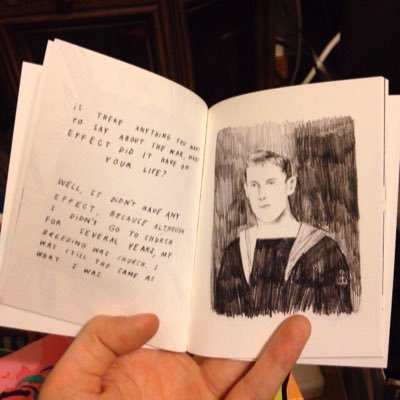 IS THERE ANYTHING YOU WANT
TO SAY ABOUT THE WAR, WHAT
EFFECT DID IT HAVE ON
YOUR LIFE?
WELL, IT DIDN'T HAVE ANY
EFFECT. BECAUSE ALTHOUGH
I DIDN'T GO TO CHURCH
FOR SEVERAL YEARS, MY
BREEDING WAS CHURCH. I
WAS STILL THE SAME AS
WHAT I WAS.